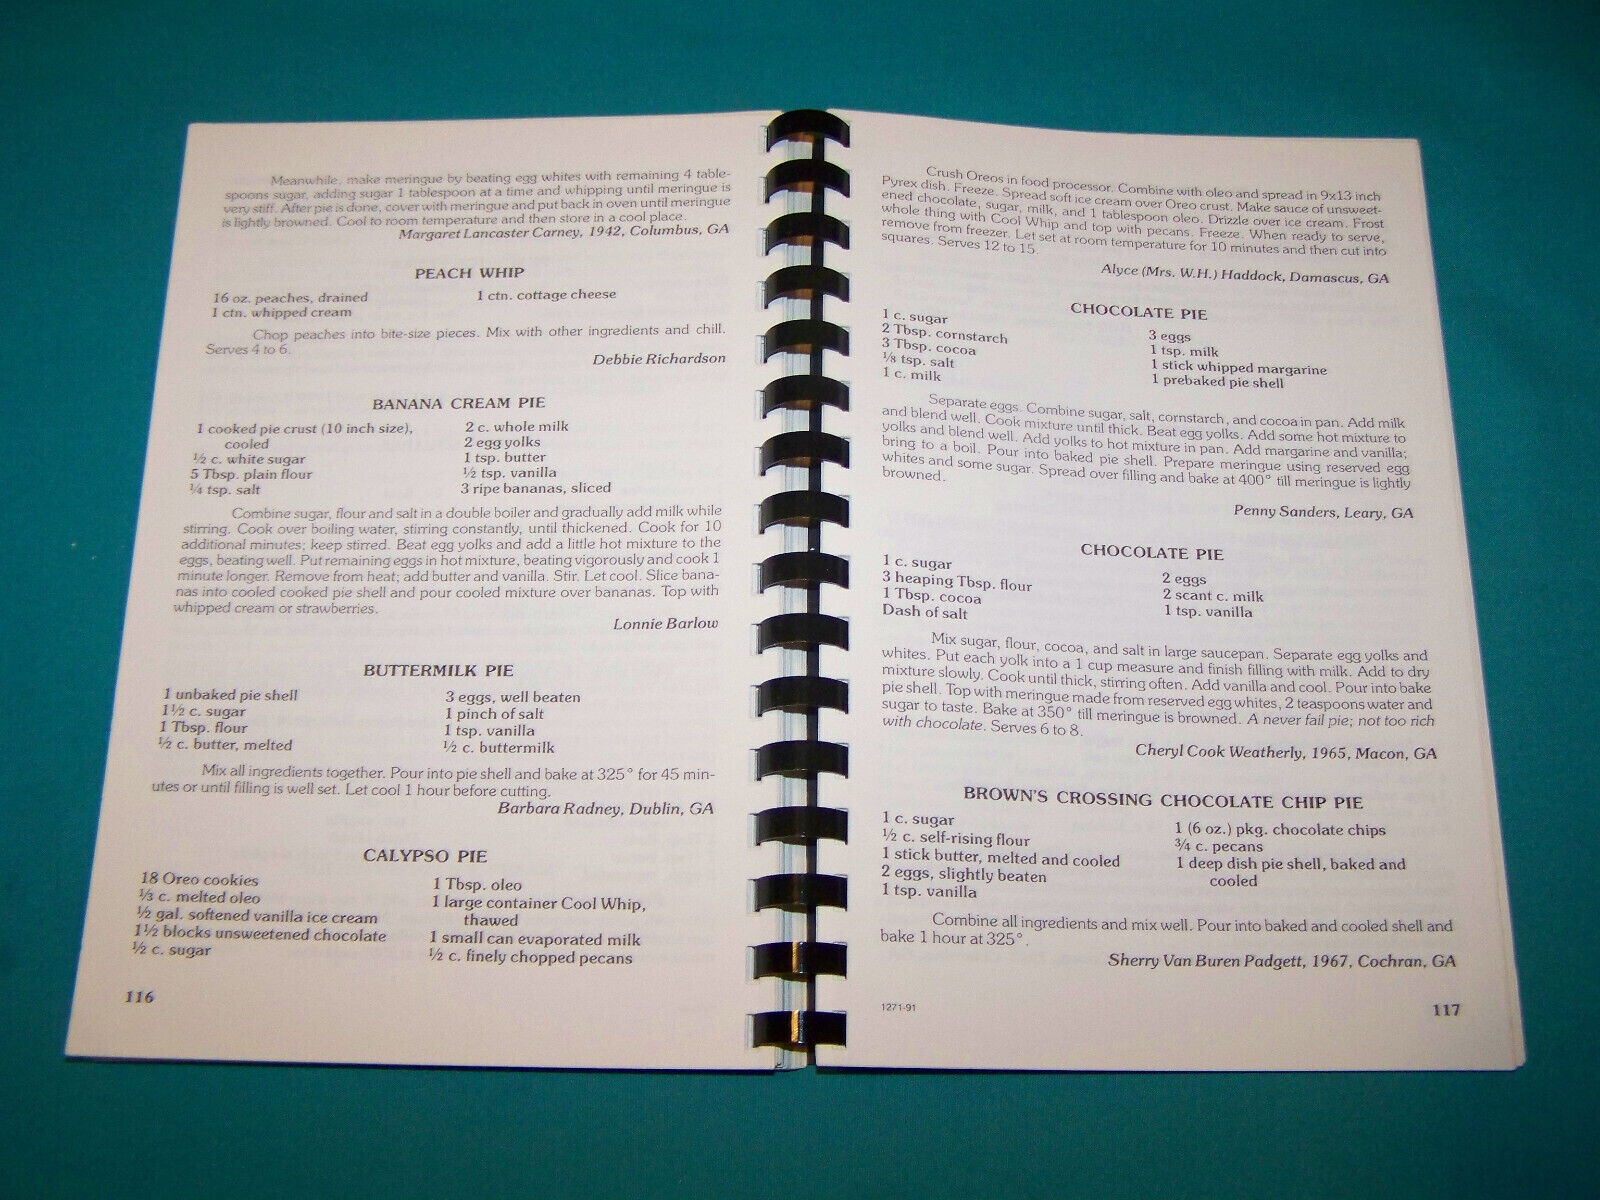 Meanwhile, make meringue by beating egg whites with remaining 4 table-
spoons sugar, adding sugar 1 tablespoon at a time and whipping until meringue is
very stiff. After pie is done, cover with meringue and put back in oven until meringue
is lightly browned. Cool to room temperature and then store in a cool place.
Margaret Lancaster Carney, 1942, Columbus, GA
PEACH WHIP
16 oz. peaches, drained
1 ctn. whipped cream
1 ctn. cottage cheese
Chop peaches into bite-size pieces. Mix with other ingredients and chill.
Serves 4 to 6.
Debbie Richardson
BANANA CREAM PIE
1 cooked pie crust (10 inch size),
cooled
½ c. white sugar
5 Tbsp. plain flour
¼ tsp. salt
2 c. whole milk
2 egg yolks
1 tsp. butter
½ tsp. vanilla
3 ripe bananas, sliced
Combine sugar, flour and salt in a double boiler and gradually add milk while
stirring. Cook over boiling water, stirring constantly, until thickened. Cook for 10
additional minutes; keep stirred. Beat egg yolks and add a little hot mixture to the
eggs, beating well. Put remaining eggs in hot mixture, beating vigorously and cook 1
minute longer. Remove from heat; add butter and vanilla. Stir. Let cool. Slice bana-
nas into cooled cooked pie shell and pour cooled mixture over bananas. Top with
whipped cream or strawberries.
Lonnie Barlow
BUTTERMILK PIE
1 unbaked pie shell
1½ c. sugar
1 Tbsp. flour
½ c. butter, melted
3 eggs, well beaten
1 pinch of salt
1 tsp. vanilla
½ c. buttermilk
Mix all ingredients together. Pour into pie shell and bake at 325° for 45 min-
utes or until filling is well set. Let cool 1 hour before cutting.
Barbara Radney, Dublin, GA
CALYPSO PIE
18 Oreo cookies
⅓ c. melted oleo
½ gal. softened vanilla ice cream
1½ blocks unsweetened chocolate
½ c. sugar
1 Tbsp. oleo
1 large container Cool Whip,
thawed
1 small can evaporated milk
½ c. finely chopped pecans
116
Crush Oreos in food processor. Combine with oleo and spread in 9x13 inch
Pyrex dish. Freeze. Spread soft ice cream over Oreo crust. Make sauce of unsweet-
ened chocolate, sugar, milk, and 1 tablespoon oleo. Drizzle over ice cream. Frost
whole thing with Cool Whip and top with pecans. Freeze. When ready to serve,
remove from freezer. Let set at room temperature for 10 minutes and then cut into
squares. Serves 12 to 15.
Alyce (Mrs. W.H.) Haddock, Damascus, GA
CHOCOLATE PIE
1 c. sugar
2 Tbsp. cornstarch
3 Tbsp. cocoa
⅛ tsp. salt
1 c. milk
3 eggs
1 tsp. milk
1 stick whipped margarine
1 prebaked pie shell
Separate eggs. Combine sugar, salt, cornstarch, and cocoa in pan. Add milk
and blend well. Cook mixture until thick. Beat egg yolks. Add some hot mixture to
yolks and blend well. Add yolks to hot mixture in pan. Add margarine and vanilla;
bring to a boil. Pour into baked pie shell. Prepare meringue using reserved egg
whites and some sugar. Spread over filling and bake at 400° till meringue is lightly
browned.
Penny Sanders, Leary, GA
CHOCOLATE PIE
1 c. sugar
3 heaping Tbsp. flour
1 Tbsp. cocoa
Dash of salt
2 eggs
2 scant c. milk
1 tsp. vanilla
Mix sugar, flour, cocoa, and salt in large saucepan. Separate egg yolks and
whites. Put each yolk into a 1 cup measure and finish filling with milk. Add to dry
mixture slowly. Cook until thick, stirring often. Add vanilla and cool. Pour into bake
pie shell. Top with meringue made from reserved egg whites, 2 teaspoons water and
sugar to taste. Bake at 350° till meringue is browned. A never fail pie; not too rich
with chocolate. Serves 6 to 8.
Cheryl Cook Weatherly, 1965, Macon, GA
BROWN'S CROSSING CHOCOLATE CHIP PIE
1 c. sugar
½ c. self-rising flour
1 stick butter, melted and cooled
2 eggs, slightly beaten
1 tsp. vanilla
1 (6 oz.) pkg. chocolate chips
¾ c. pecans
1 deep dish pie shell, baked and
cooled
Combine all ingredients and mix well. Pour into baked and cooled shell and
bake 1 hour at 325°.
Sherry Van Buren Padgett, 1967, Cochran, GA
1271-91
117